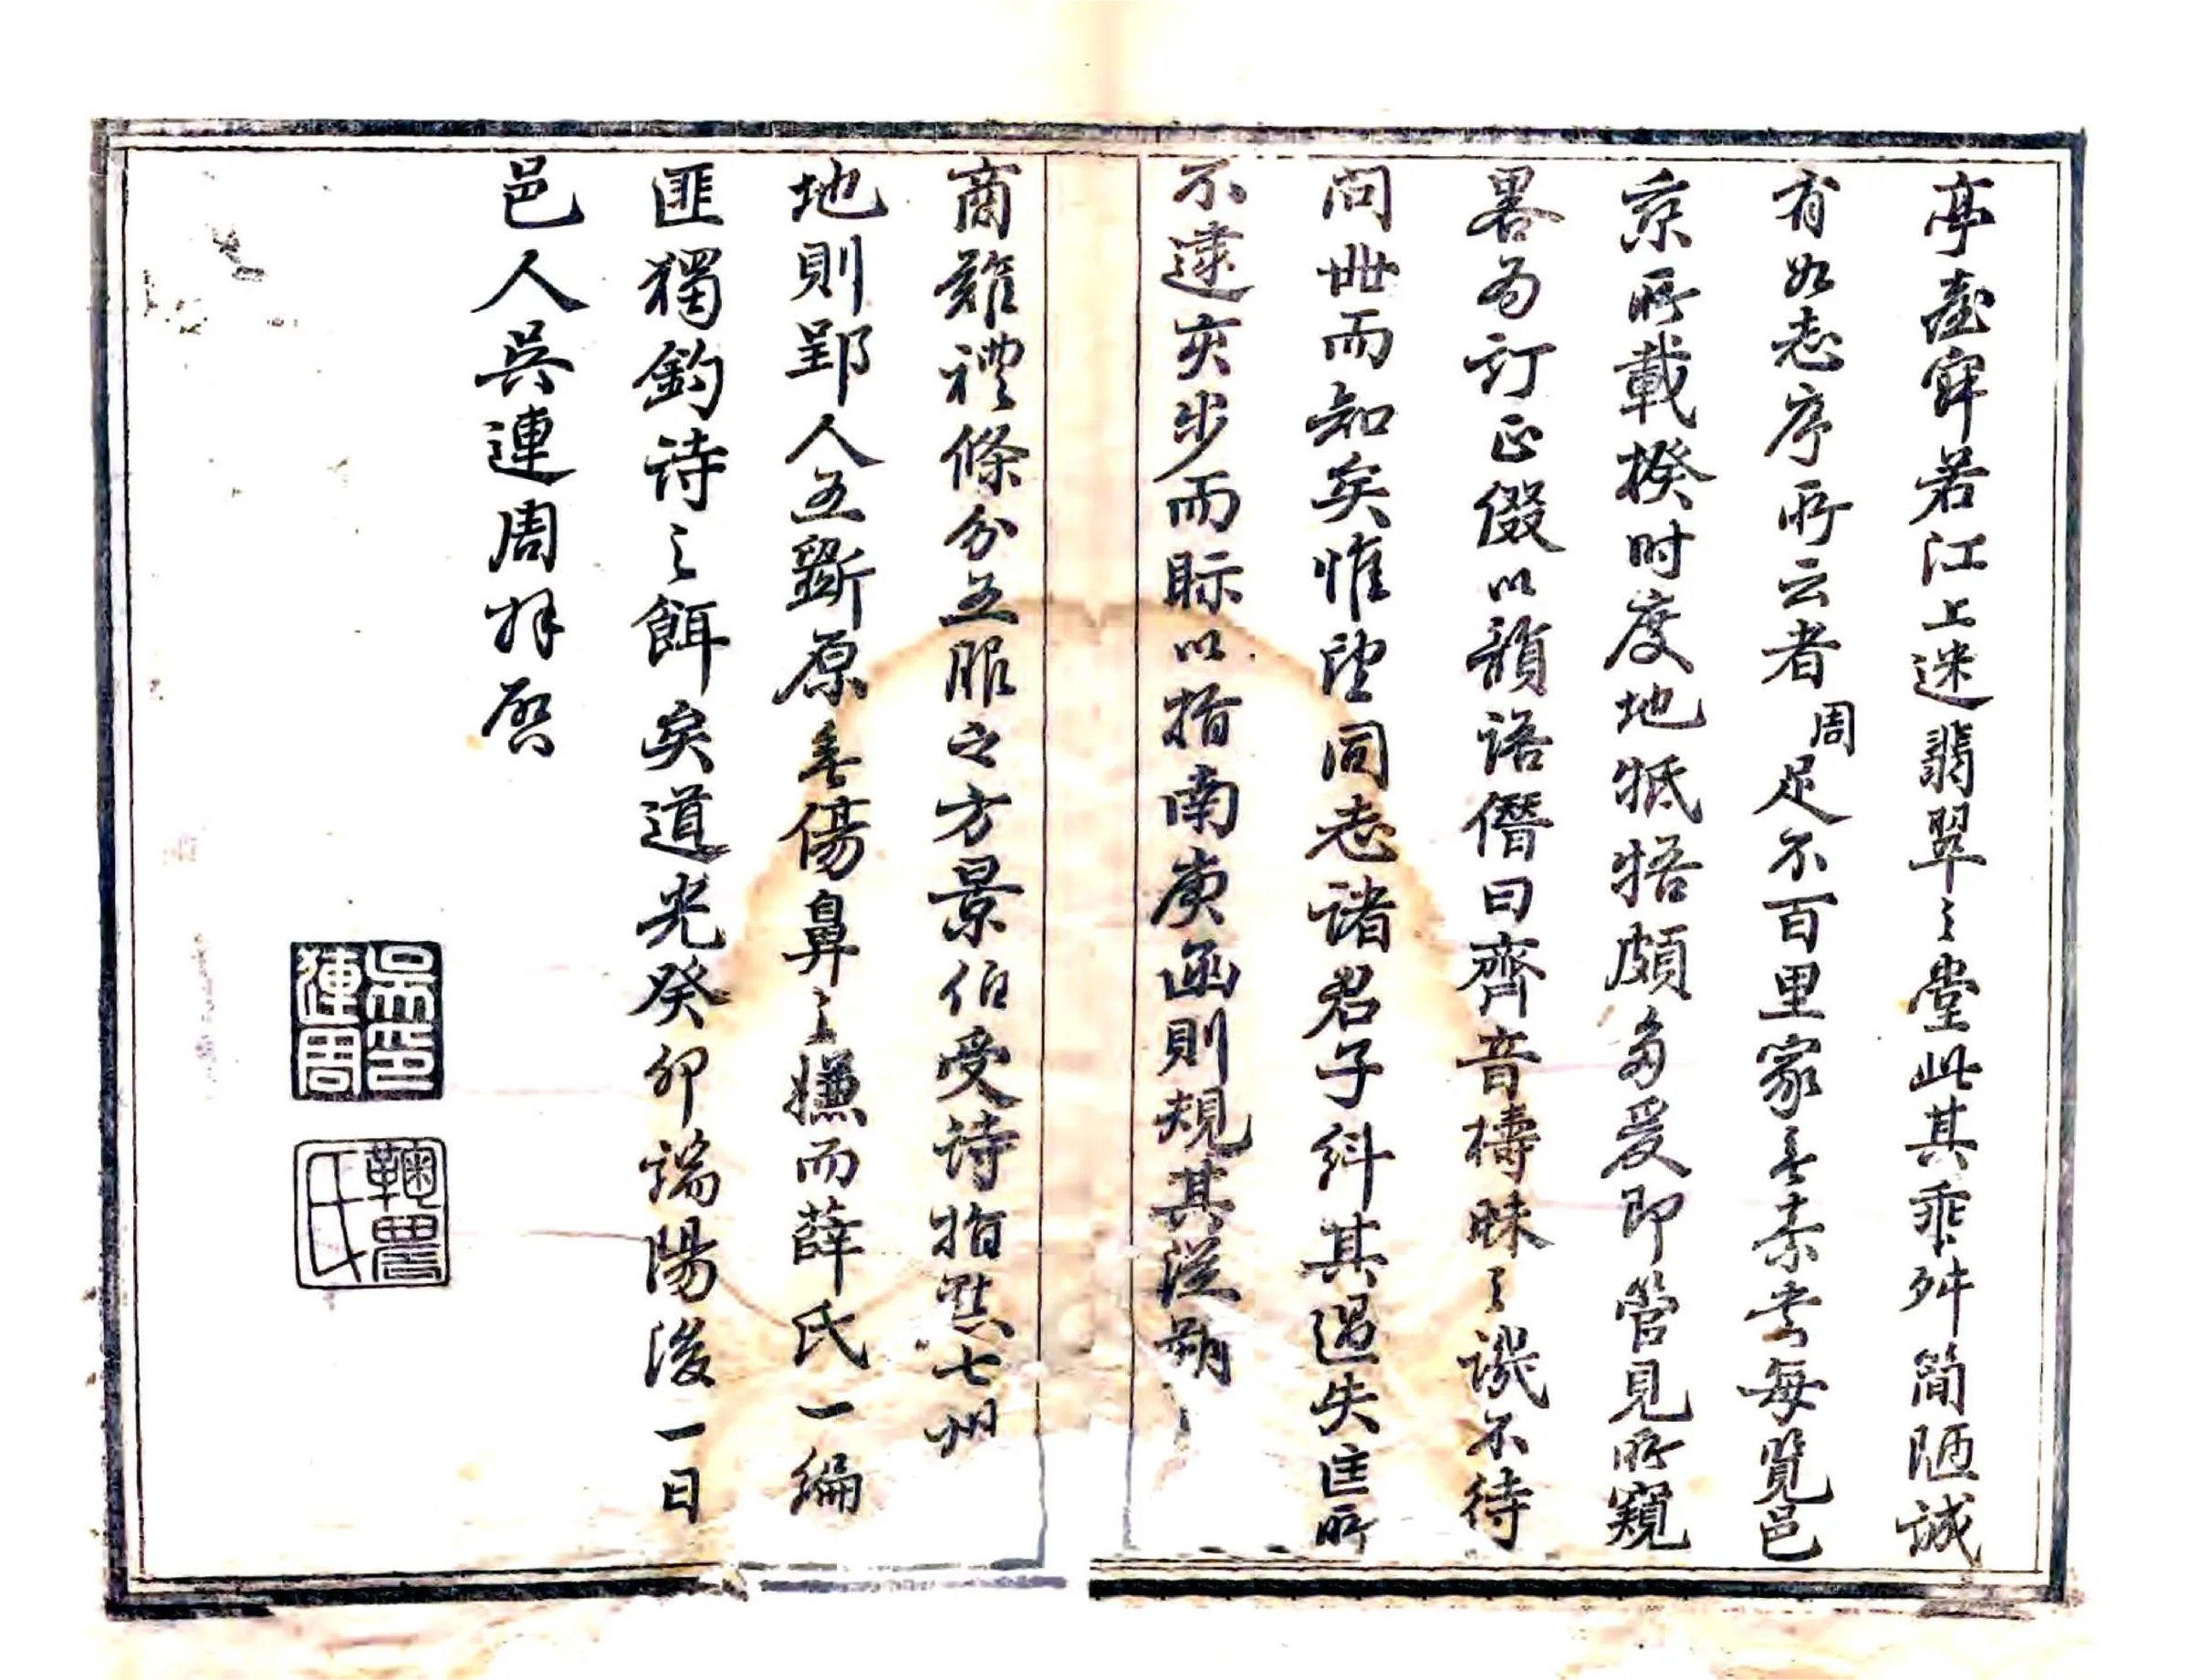 亭臺寧若江上迷翡翠之堂此其乖舛簡陋誠
有如志序所云者周足不百里家無素書每覽邑
乘所載揆時度地牴牾頗多爰即管見所窺
畧為訂正綴以韻語僭曰齊音檮昧之譏不待
問世而知矣惟望同志諸君子糾其過失匡所
不逮亥步而眎以指南庾函則規其從朔
商難禮條分五服之方景伯受詩指點七州
地則郢人立斲原無傷鼻之嫌而薛氏一編
匪獨鈞詩之餌矣道光癸卯端陽後一日
邑人吳連周拜啓
吳連周印
鞠農氏